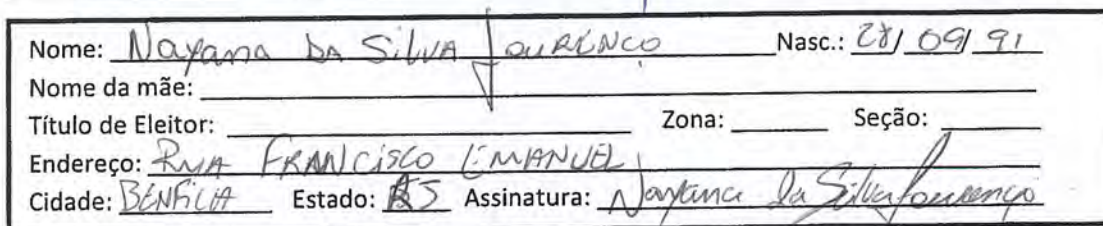 Nome: Nayana DA SilVA LOURENÇO Nasc.: 28/ 09/ 91
Nome da mãe:
Título de Eleitor: Zona: Seção:
Endereço: RUA FRANCISCO EMANUEL
Cidade: BENFICA Estado: RJ Assinatura: Nayana da Silva Lourenço